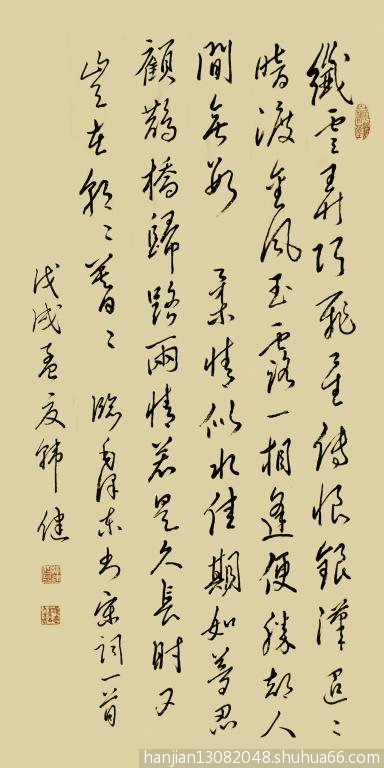 纖雲弄巧飛星傳恨銀漢迢〻
暗渡金風玉露一相逢便勝却人
間無數 柔情似水佳期如夢忍
顧鵲橋歸路兩情若是久長時又
豈在朝〻暮〻 臨毛澤东书宋詞一首
戊戌孟夏韩健
hanjian13082048.shuhua66.com